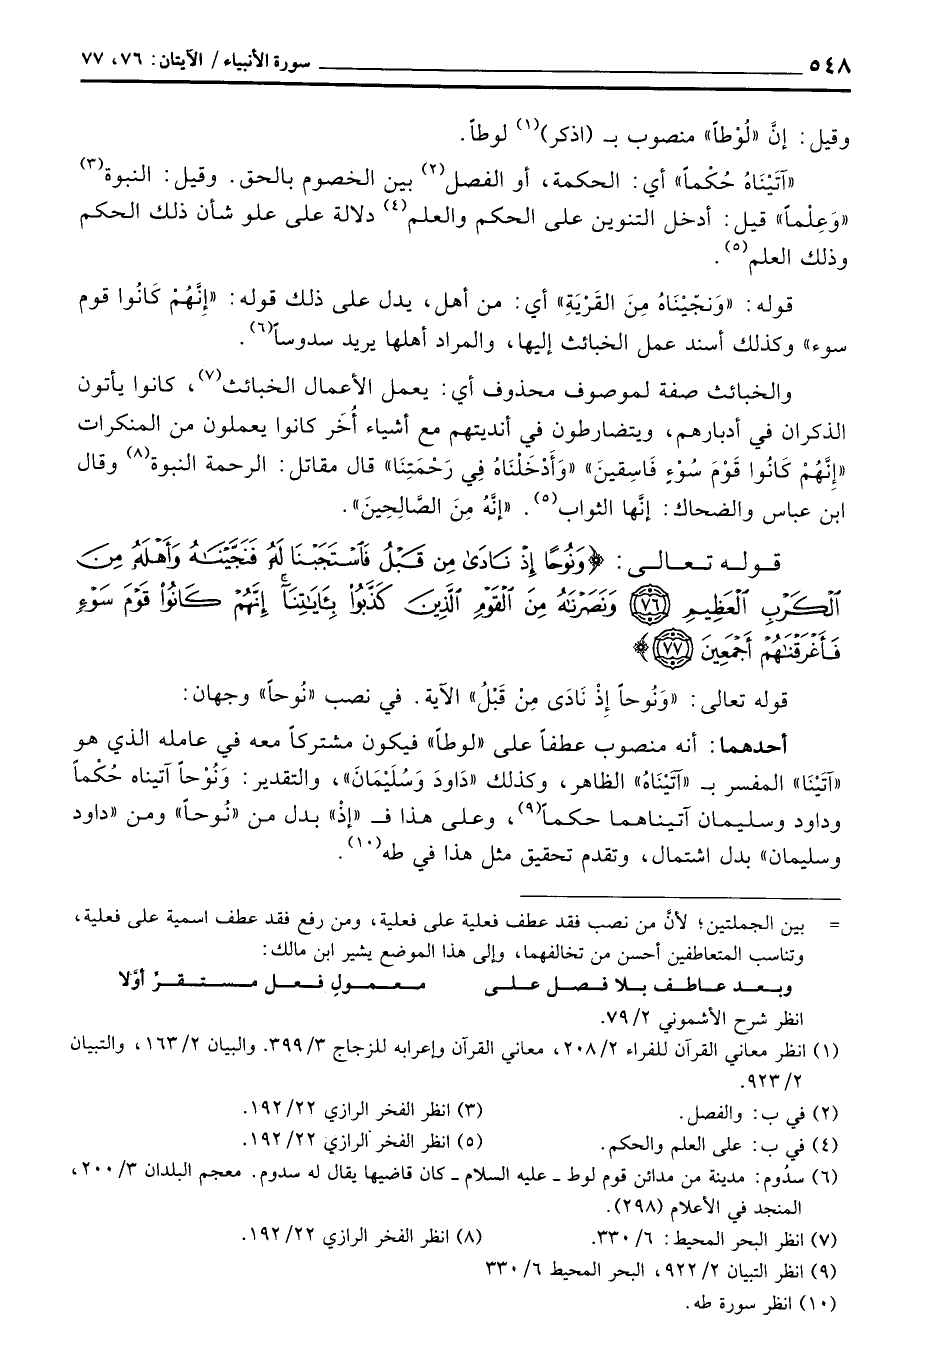 ٥٤٨ سورة الأنبياء / الآيتان: ٧٦، ٧٧
وقيل: إنَّ «لُوْطاً» منصوب بـ (اذكر)(١) لوطاً.
«آتَيْنَاهُ حُكْماً» أي: الحكمة، أو الفصل(٢) بين الخصوم بالحق. وقيل: النبوة(٣)
«وَعِلْماً» قيل: أدخل التنوين على الحكم والعلم(٤) دلالة على علو شأن ذلك الحكم
وذلك العلم(٥).
قوله: «وَنجّيْنَاهُ مِنَ القَرْيَةِ» أي: من أهل، يدل على ذلك قوله: «إِنَّهُمْ كَانُوا قوم
سوء» وكذلك أسند عمل الخبائث إليها، والمراد أهلها يريد سدوساً(٦).
والخبائث صفة لموصوف محذوف أي: يعمل الأعمال الخبائث(٧)، كانوا يأتون
الذكران في أدبارهم، ويتضارطون في أنديتهم مع أشياء أُخَر كانوا يعملون من المنكرات
«إِنَّهُمْ كَانُوا قَوْمَ سُوْءٍ فَاسِقينَ» «وَأَدْخَلْنَاهُ فِي رَحْمَتِنَا» قال مقاتل: الرحمة النبوة(٨) وقال
ابن عباس والضحاك: إنَّها الثواب(٥). «إنَّهُ مِنَ الصَّالِحِينَ».
قوله تعالى: ﴿وَنُوحًا إِذْ نَادَىٰ مِن قَبْلُ فَٱسْتَجَبْنَا لَهُۥ فَنَجَّيْنَـٰهُ وَأَهْلَهُۥ مِنَ
ٱلْكَرْبِ ٱلْعَظِيمِ ﴿٧٦﴾ وَنَصَرْنَـٰهُ مِنَ ٱلْقَوْمِ ٱلَّذِينَ كَذَّبُوا۟ بِـَٔايَـٰتِنَآ ۚ إِنَّهُمْ كَانُوا۟ قَوْمَ سَوْءٍ
فَأَغْرَقْنَـٰهُمْ أَجْمَعِينَ ﴿٧٧﴾﴾
قوله تعالى: «وَنُوحاً إِذْ نَادَى مِنْ قَبْلُ» الآية. في نصب «نُوحاً» وجهان:
أحدهما: أنه منصوب عطفاً على «لوطاً» فيكون مشتركاً معه في عامله الذي هو
«آتَيْنَا» المفسر بـ «آتَيْنَاهُ» الظاهر، وكذلك «دَاودَ وَسُلَيْمَانَ»، والتقدير: وَنُوْحاً آتيناه حُكْماً
وداود وسليمان آتيناهما حكماً(٩)، وعلى هذا فـ «إذْ» بدل من «نُوحاً» ومن «داود
وسليمان» بدل اشتمال، وتقدم تحقيق مثل هذا في طه(١٠).
= بين الجملتين؛ لأنَّ من نصب فقد عطف فعلية على فعلية، ومن رفع فقد عطف اسمية على فعلية،
وتناسب المتعاطفين أحسن من تخالفهما، وإلى هذا الموضع يشير ابن مالك:
وبعد عاطف بلا فصل على معمولِ فعل مستقرِّ أوّلا
انظر شرح الأشموني ٢/ ٧٩.
(١) انظر معاني القرآن للفراء ٢٠٨/٢، معاني القرآن وإعرابه للزجاج ٣٩٩/٣. والبيان ١٦٣/٢، والتبيان
٩٢٣/٢.
(٢) في ب: والفصل. (٣) انظر الفخر الرازي ١٩٢/٢٢.
(٤) في ب: على العلم والحكم. (٥) انظر الفخر الرازي ١٩٢/٢٢.
(٦) سدُوم: مدينة من مدائن قوم لوط ـ عليه السلام ـ كان قاضيها يقال له سدوم. معجم البلدان ٢٠٠/٣،
المنجد في الأعلام (٢٩٨).
(٧) انظر البحر المحيط: ٦/ ٣٣٠. (٨) انظر الفخر الرازي ١٩٢/٢٢.
(٩) انظر التبيان ٩٢٢/٢، البحر المحيط ٣٣٠/٦
(١٠) انظر سورة طه.